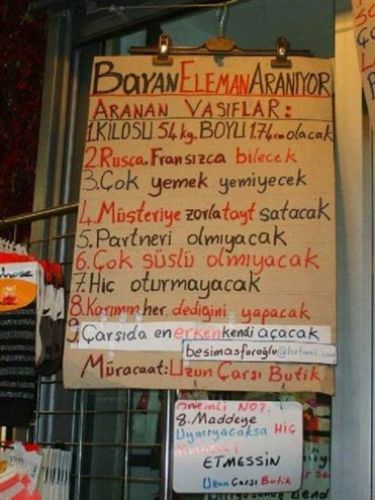 BAYAN ELEMAN ARANIYOR
ARANAN VASIFLAR:
1.KILOSU 54kg. BOYU 1.74cm olacak
2.Rusça. Fransızca bilecek
3.Çok yemek yemiyecek
4.Müşteriye zorla tayt satacak
5.Partneri olmıyacak
6.Çok süslü olmıyacak
7.Hiç oturmayacak
8.Karımın her dediğini yapacak
9.Çarşıda en erken kendi açacak
besimasfuroğlu@hotmail.com
Müracaat: Uzun Çarşı Butik
Önemli NOT.
8.Maddeye
Uymıyacaksa Hiç
ETMESSİN
Uzun Çarşı Butik